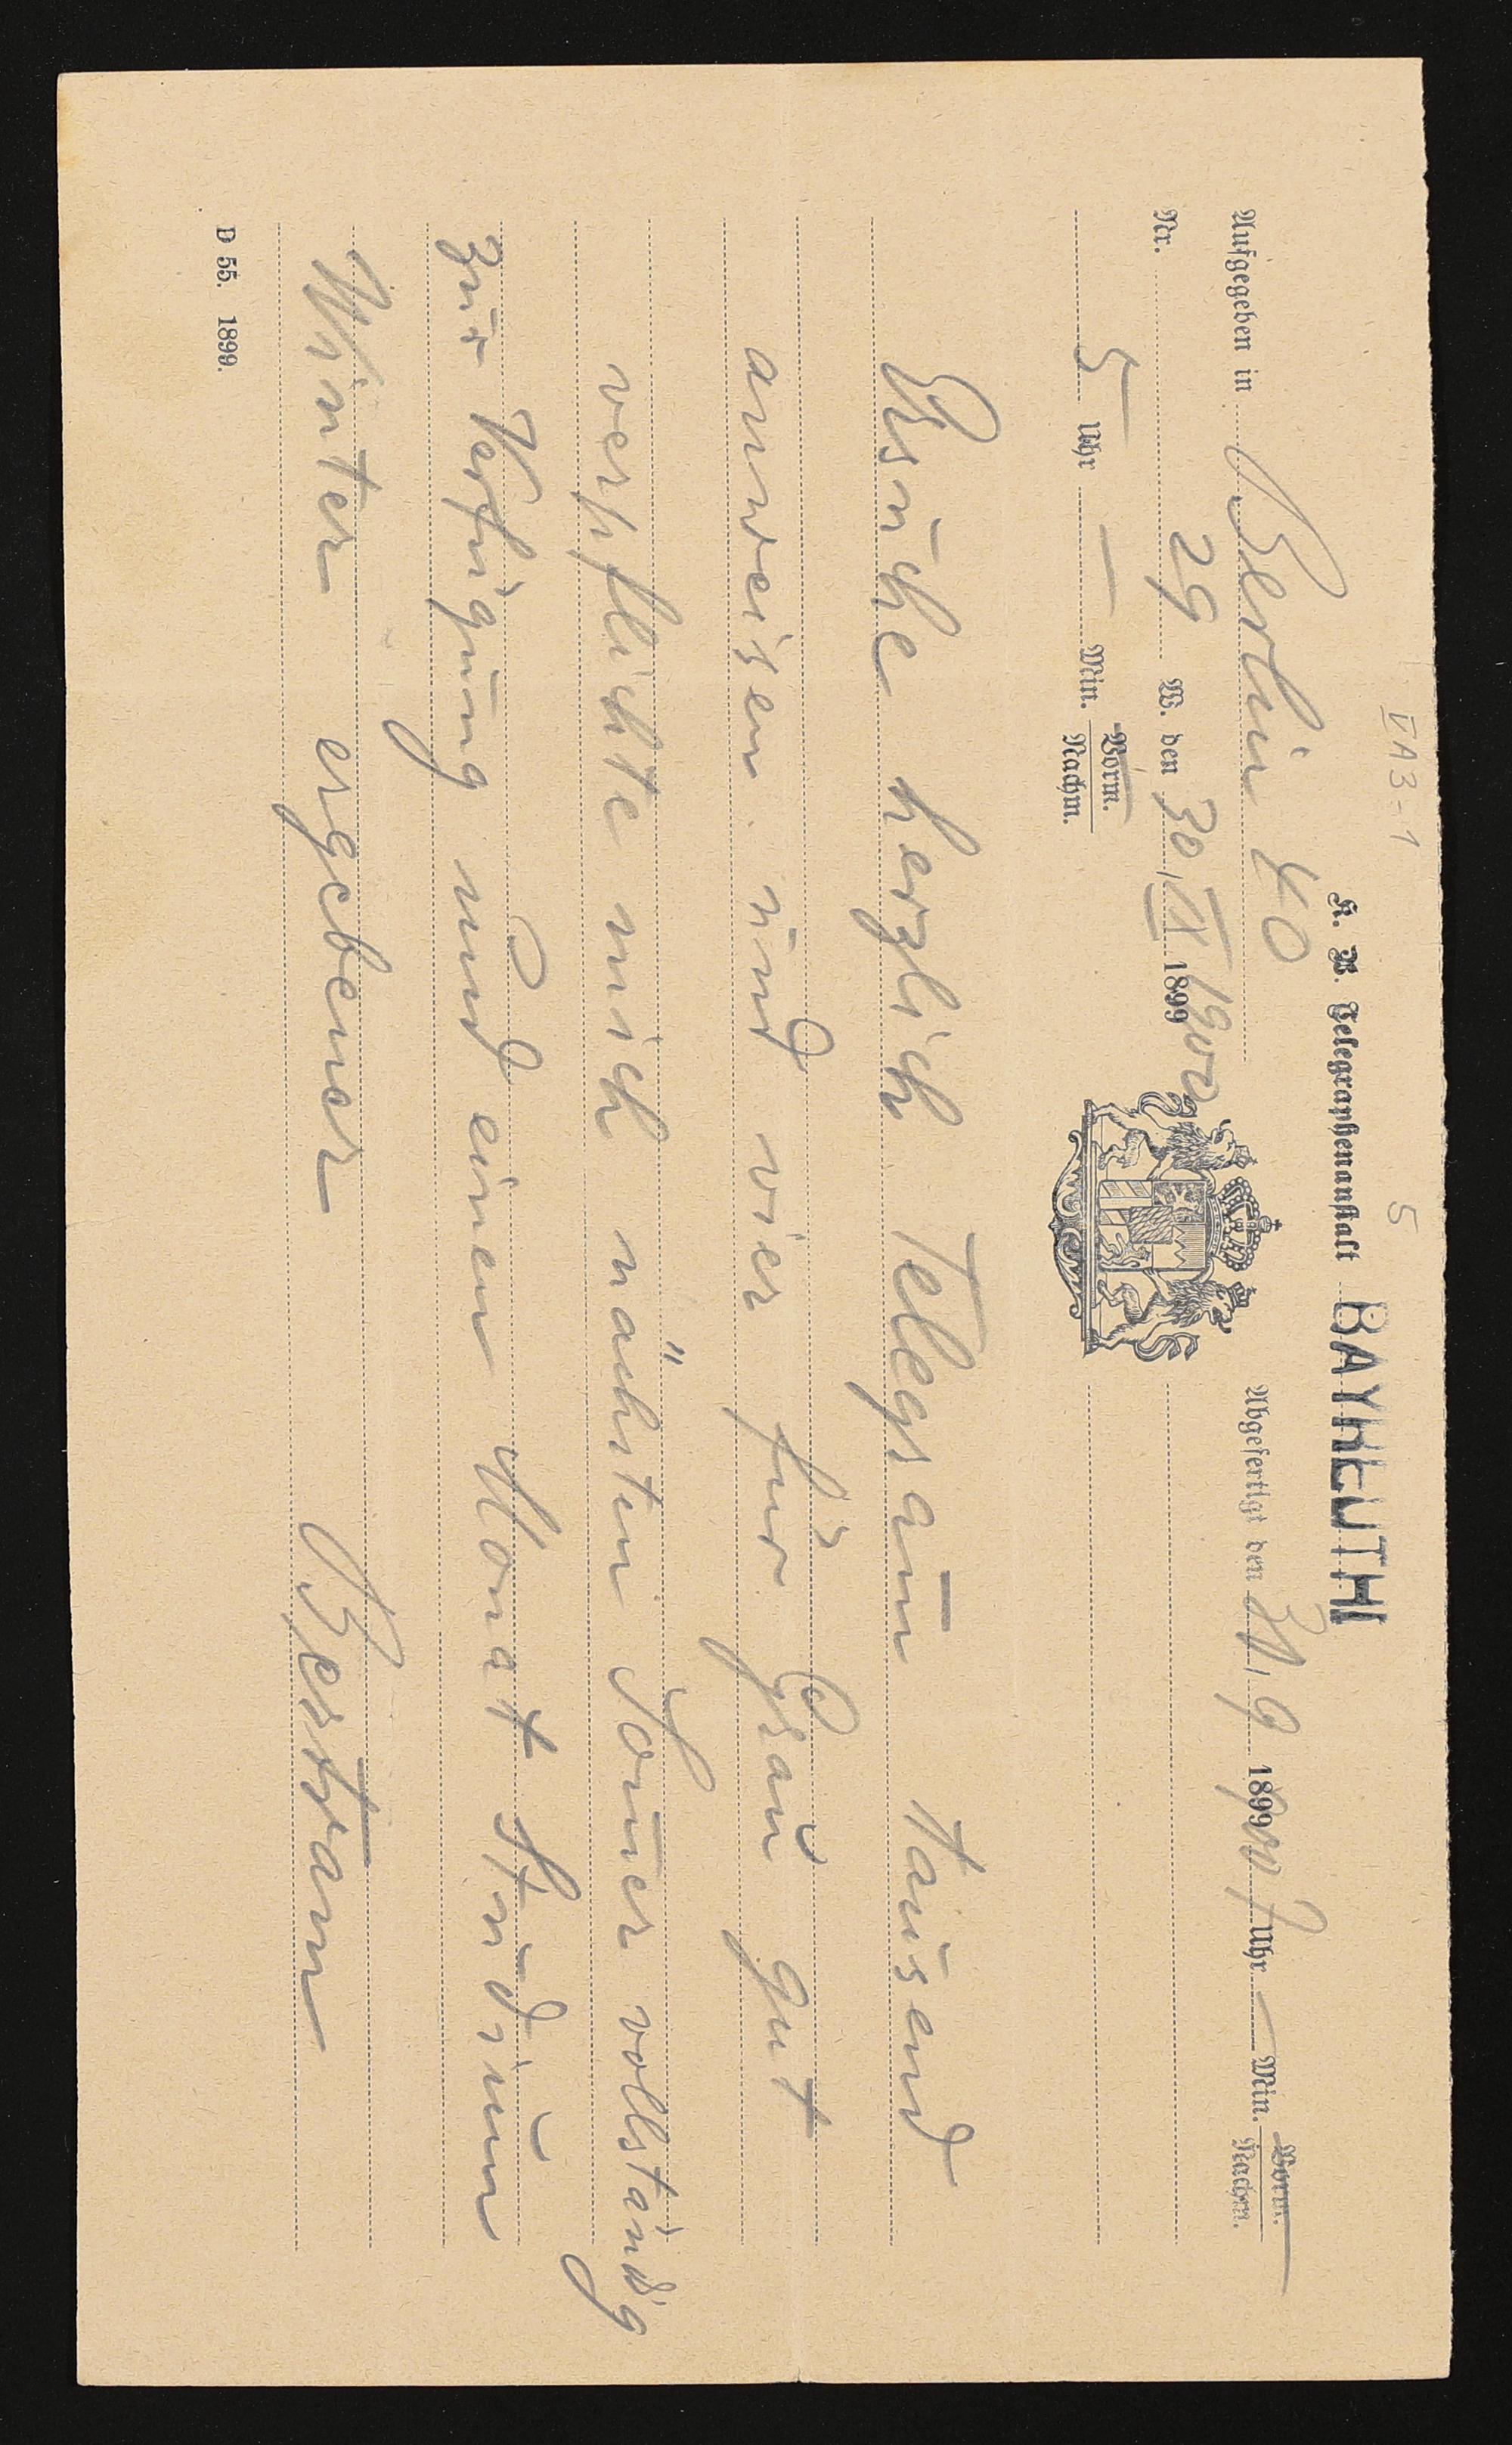 V A 3 - 1
5
K. B. Telegraphenanstalt BAYREUTH
Aufgegeben in Berlin 40
Nr. 29 W. den 30/IX 1899 1900
5 Uhr — Min. Vorm. Nachm.
Abgefertigt den 30/9 1899 900 7 Uhr — Min. Vorm. Nachm.
Ersuche herzlich telegram tausend
anweisen und vier für Grau gut
verpflichte mich nächsten Somer vollständig
zur Verfügung und einen Monat Studium
Winter ergebener Bertram
D 55. 1899.